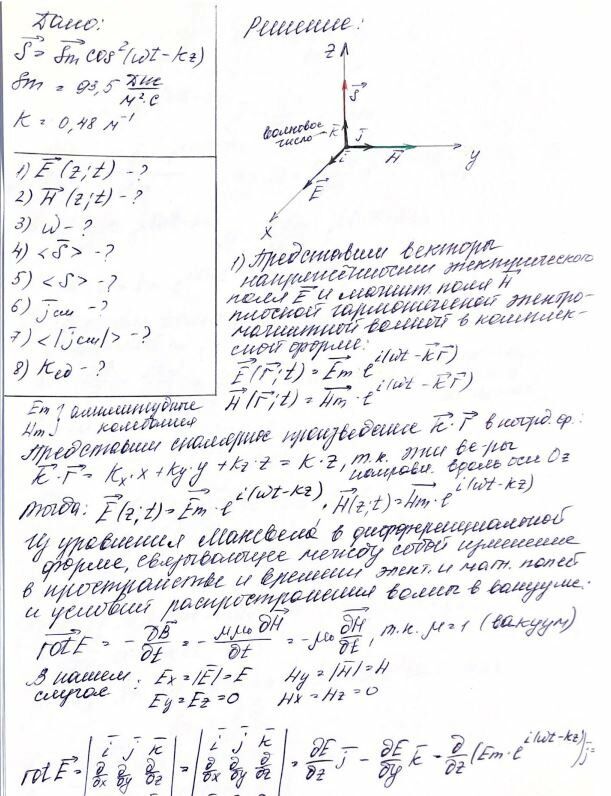 Дано:
S⃗ = S⃗m cos²(ωt − kz)
Sm = 93,5 Дж/м²·с
K = 0,48 м⁻¹
1) E⃗(z;t) − ?
2) H⃗(z;t) − ?
3) ω − ?
4) <S⃗> − ?
5) <S> − ?
6) j̄см − ?
7) <|j̄см|> − ?
8) Kед − ?
Решение:
z
S⃗
волновое число
k̄
j̄
H̄
y
ī
E̅
x
1) Представим векторы
напряжённости электрического
поля E̅ и магнит поля H̅
плоской гармонической электро-
магнитной волной в комплек-
сной форме:
E⃗(r⃗;t) = E⃗m·e^i(ωt − k⃗r⃗)
H⃗(r⃗;t) = H⃗m·e^i(ωt − k⃗r⃗)
Em } амплитудные
Hm } колебания
Представим скалярное произведение k⃗·r⃗ в коорд.ф.:
k⃗·r⃗ = Kx·x + Ky·y + Kz·z = K·z, т.к. эти ве-ры
направл. вдоль оси Oz
тогда: E⃗(z;t) = E⃗m·e^i(ωt−kz), H⃗(z;t) = H⃗m·e^i(ωt−kz)
Из уравнения Максвела в дифференциальной
форме, связывающее между собой изменение
в пространстве и времени элект. и маг. полей
и условий распространения волны в вакууме:
rot E = − ∂B⃗/∂t = − μμ₀∂H⃗/∂t = −μ₀ ∂H⃗/∂t, т.к. μ=1 (вакуум)
В нашем случае: Ex = |E̅| = E Hy = |H̅| = H
Ey = Ez = 0 Hx = Hz = 0
rot E⃗ = | ī j̄ k̄ ∂/∂x ∂/∂y ∂/∂z | = | ī j̄ k̄ ∂/∂x ∂/∂y ∂/∂z | = ∂E/∂z j̄ − ∂E/∂y k̄ = ∂/∂z (Em·e^i(ωt−kz)) j̄ =